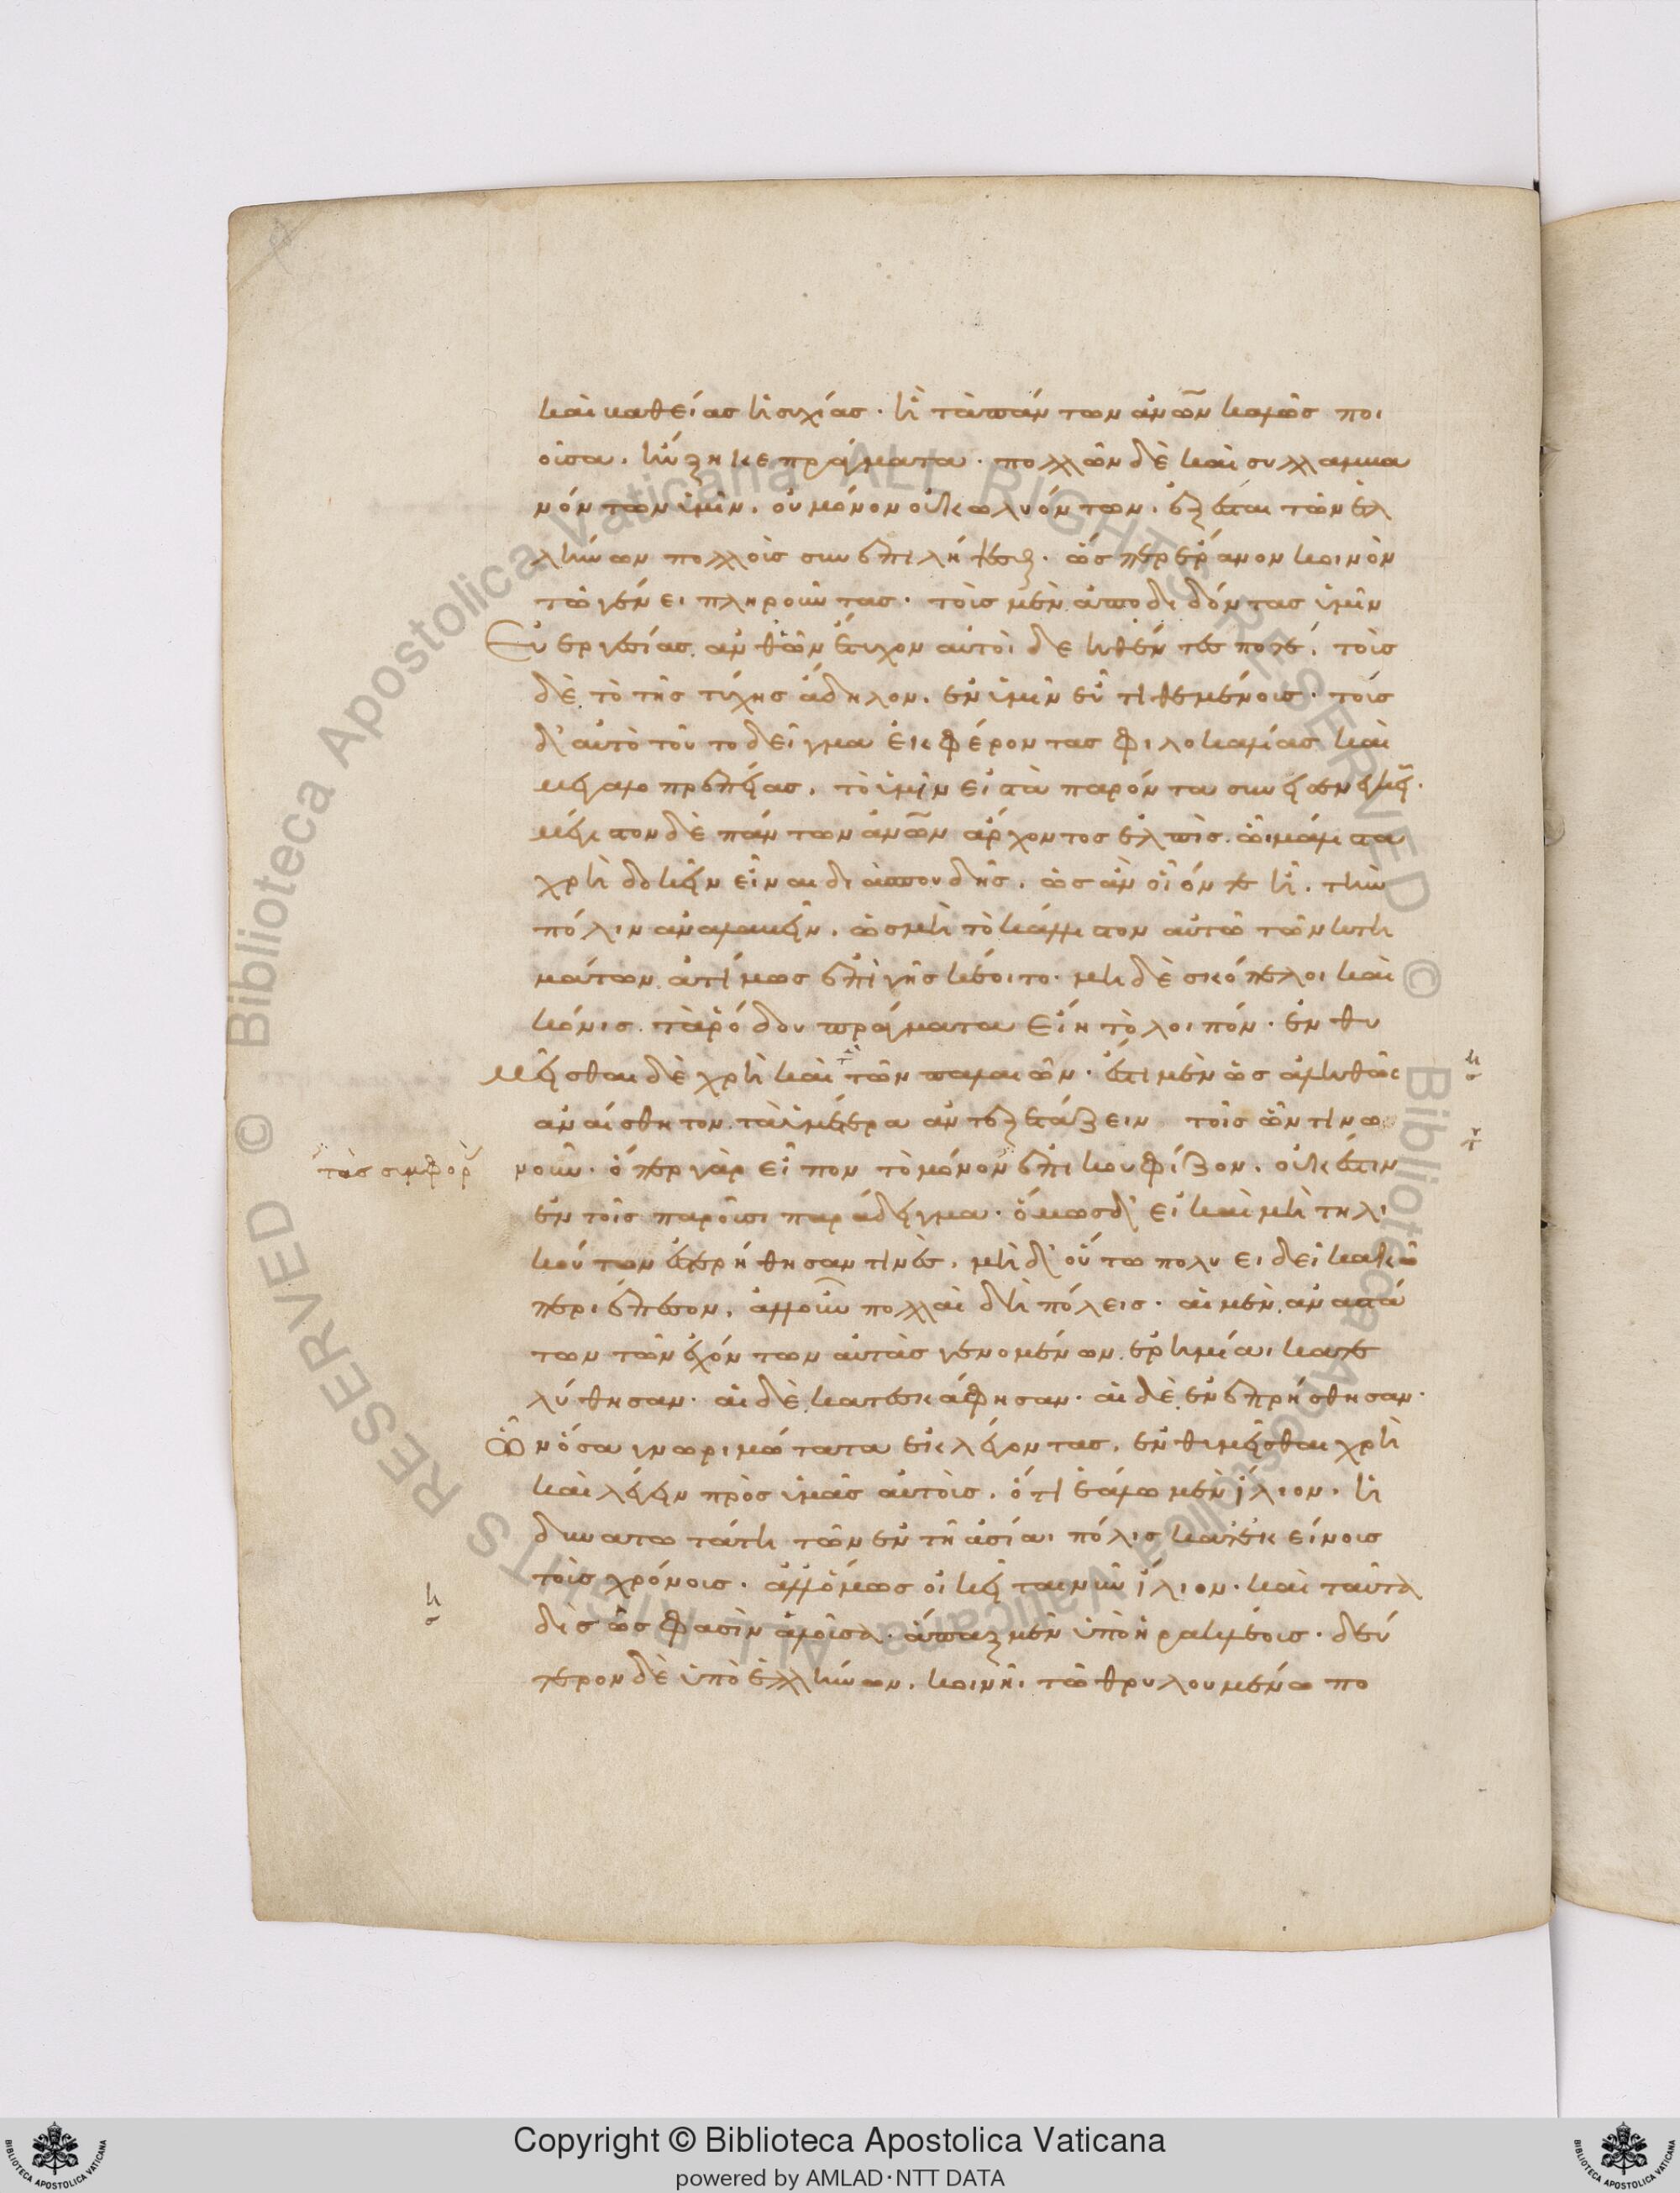 καὶ καθείας ἡσυχίας· ἢ τὰ πάντων ἀνων καλῶς ποι
οῦσα, ηὔξηκε πράγματα· πολλῶν δὲ καὶ συλλαμβα
νόντων ὑμῖν, οὐ μόνον οὐ κωλυόντων, ἔξεσται τῶν ἑλ
λήνων πολλοῖς συνεπιλήψεσθαι· ὥσπερ ἔρανον κοινὸν
τῶ γένει πληροῦντας· τοῖς μὲν ἀποδιδόντας ὑμῖν
εὐεργεσίας, ἀνθ ὧν ἔτυχον αὐτοὶ δεηθέντες ποτέ, τοῖς
δὲ τὸ τῆς τύχης ἄδηλον, ἐν ὑμῖν εὖ τιθεμένοις· τοῖς
δ' αὐτὸ τοῦτο δεῖγμα ἐκφέροντας φιλοκαλίας καὶ
μεγαλοπρεπείας, τὸ ὑμῖν εἰς τὰ παρόντα συνεισενεγκεῖν·
μέγιστον δὲ πάντων ἀνων ἄρχοντος ἐλπὶς, ὧι μάλιστα
χρὴ δοκεῖν εἶναι διὰ σπουδῆς, ὡς ἂν οἷόν τε ἦ, τὴν
πόλιν ἀναλαβεῖν, ὡς μὴ τὸ κάλλιστον αὐτῶ τῶν κτη
μάτων ἀτίμως ἐπὶ γῆς κέοιτο· μὴ δὲ σκόπελοι καὶ
κόνις, παρόδου πράγματα εἴη τὸ λοιπόν· ἐνθυ
μεῖσθαι δὲ χρὴ καὶ τῶν παλαιῶν· ἔστι μὲν ὡς ἀληθῶς
ἀναίσθητον, τὰ ἡμέτερα ἀντεξετάζειν τοῖς ὧντινω
τὰς συμφορ
νοῦν· ὅπερ γὰρ εἶπον τὸ μόνον ἐπικουφίζον, οὐκ ἔστιν
ἐν τοῖς παροῦσι παράδειγμα· ὅμως δ' εἰ καὶ μὴ τηλι
κούτων ἐστερήθησαν τινὲς, μὴ δ' οὕτω πολυειδεῖ κακῶ
περιέπεσον, ἀλλ' οὖν πολλαὶ δὴ πόλεις· αἱ μὲν, ἀναστά
των τῶν ἐχόντων αὐτὰς γενομένων, ἐρημίαι κατε
λύθησαν· αἱ δὲ, κατεσκάφησαν· αἱ δὲ, ἐνεπρήσθησαν·
ὧν ὅσα γνωριμώτατα ἐκλέγοντας, ἐνθυμεῖσθαι χρὴ
καὶ λέγειν πρὸς ὑμᾶς αὐτοὺς, ὅτι ἑάλω μὲν ἴλιον, ἡ
δυνατωτάτη τῶν ἐν τῆ ἀσίαι πόλις κατ' ἐκείνοις
τοῖς χρόνοις· ἀλλ' ὅμως οἰκεῖται νῦν ἴλιον· καὶ ταῦτα
δὶς ὥς φασὶν ἁλοῦσα· ἅπαξ μὲν ὑπὸ ἡρακλέοις· δεύ
τερον δὲ ὑπὸ ἑλλήνων, κοινῆι τῶ θρυλουμένω πο
Copyright © Biblioteca Apostolica Vaticana
powered by AMLAD·NTT DATA